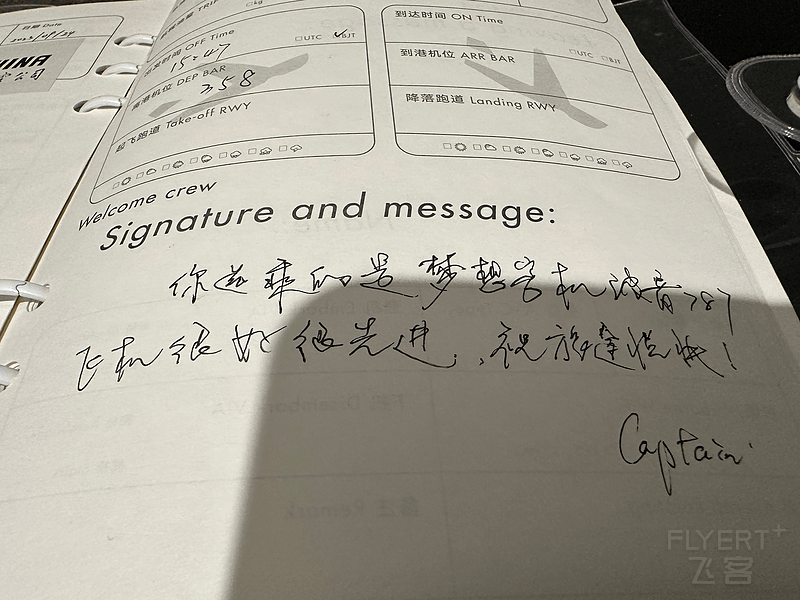 日期 Date
HINA
公司
TRIP
kg
出发时间 OFF Time
UTC ✓BJT
15:47
离港机位 DEP BAR
358
起飞跑道 Take-off RWY
到达时间 ON Time
UTC BJT
到港机位 ARR BAR
降落跑道 Landing RWY
Welcome crew
Signature and message:
你送乘的是梦想客机波音787
飞机很好很先进，祝旅途愉快！
Captain
FLYERT+
飞客